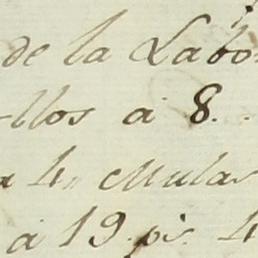 de la Labo
llos á 8.
a 4,, Mulas
á 19 ps. 4